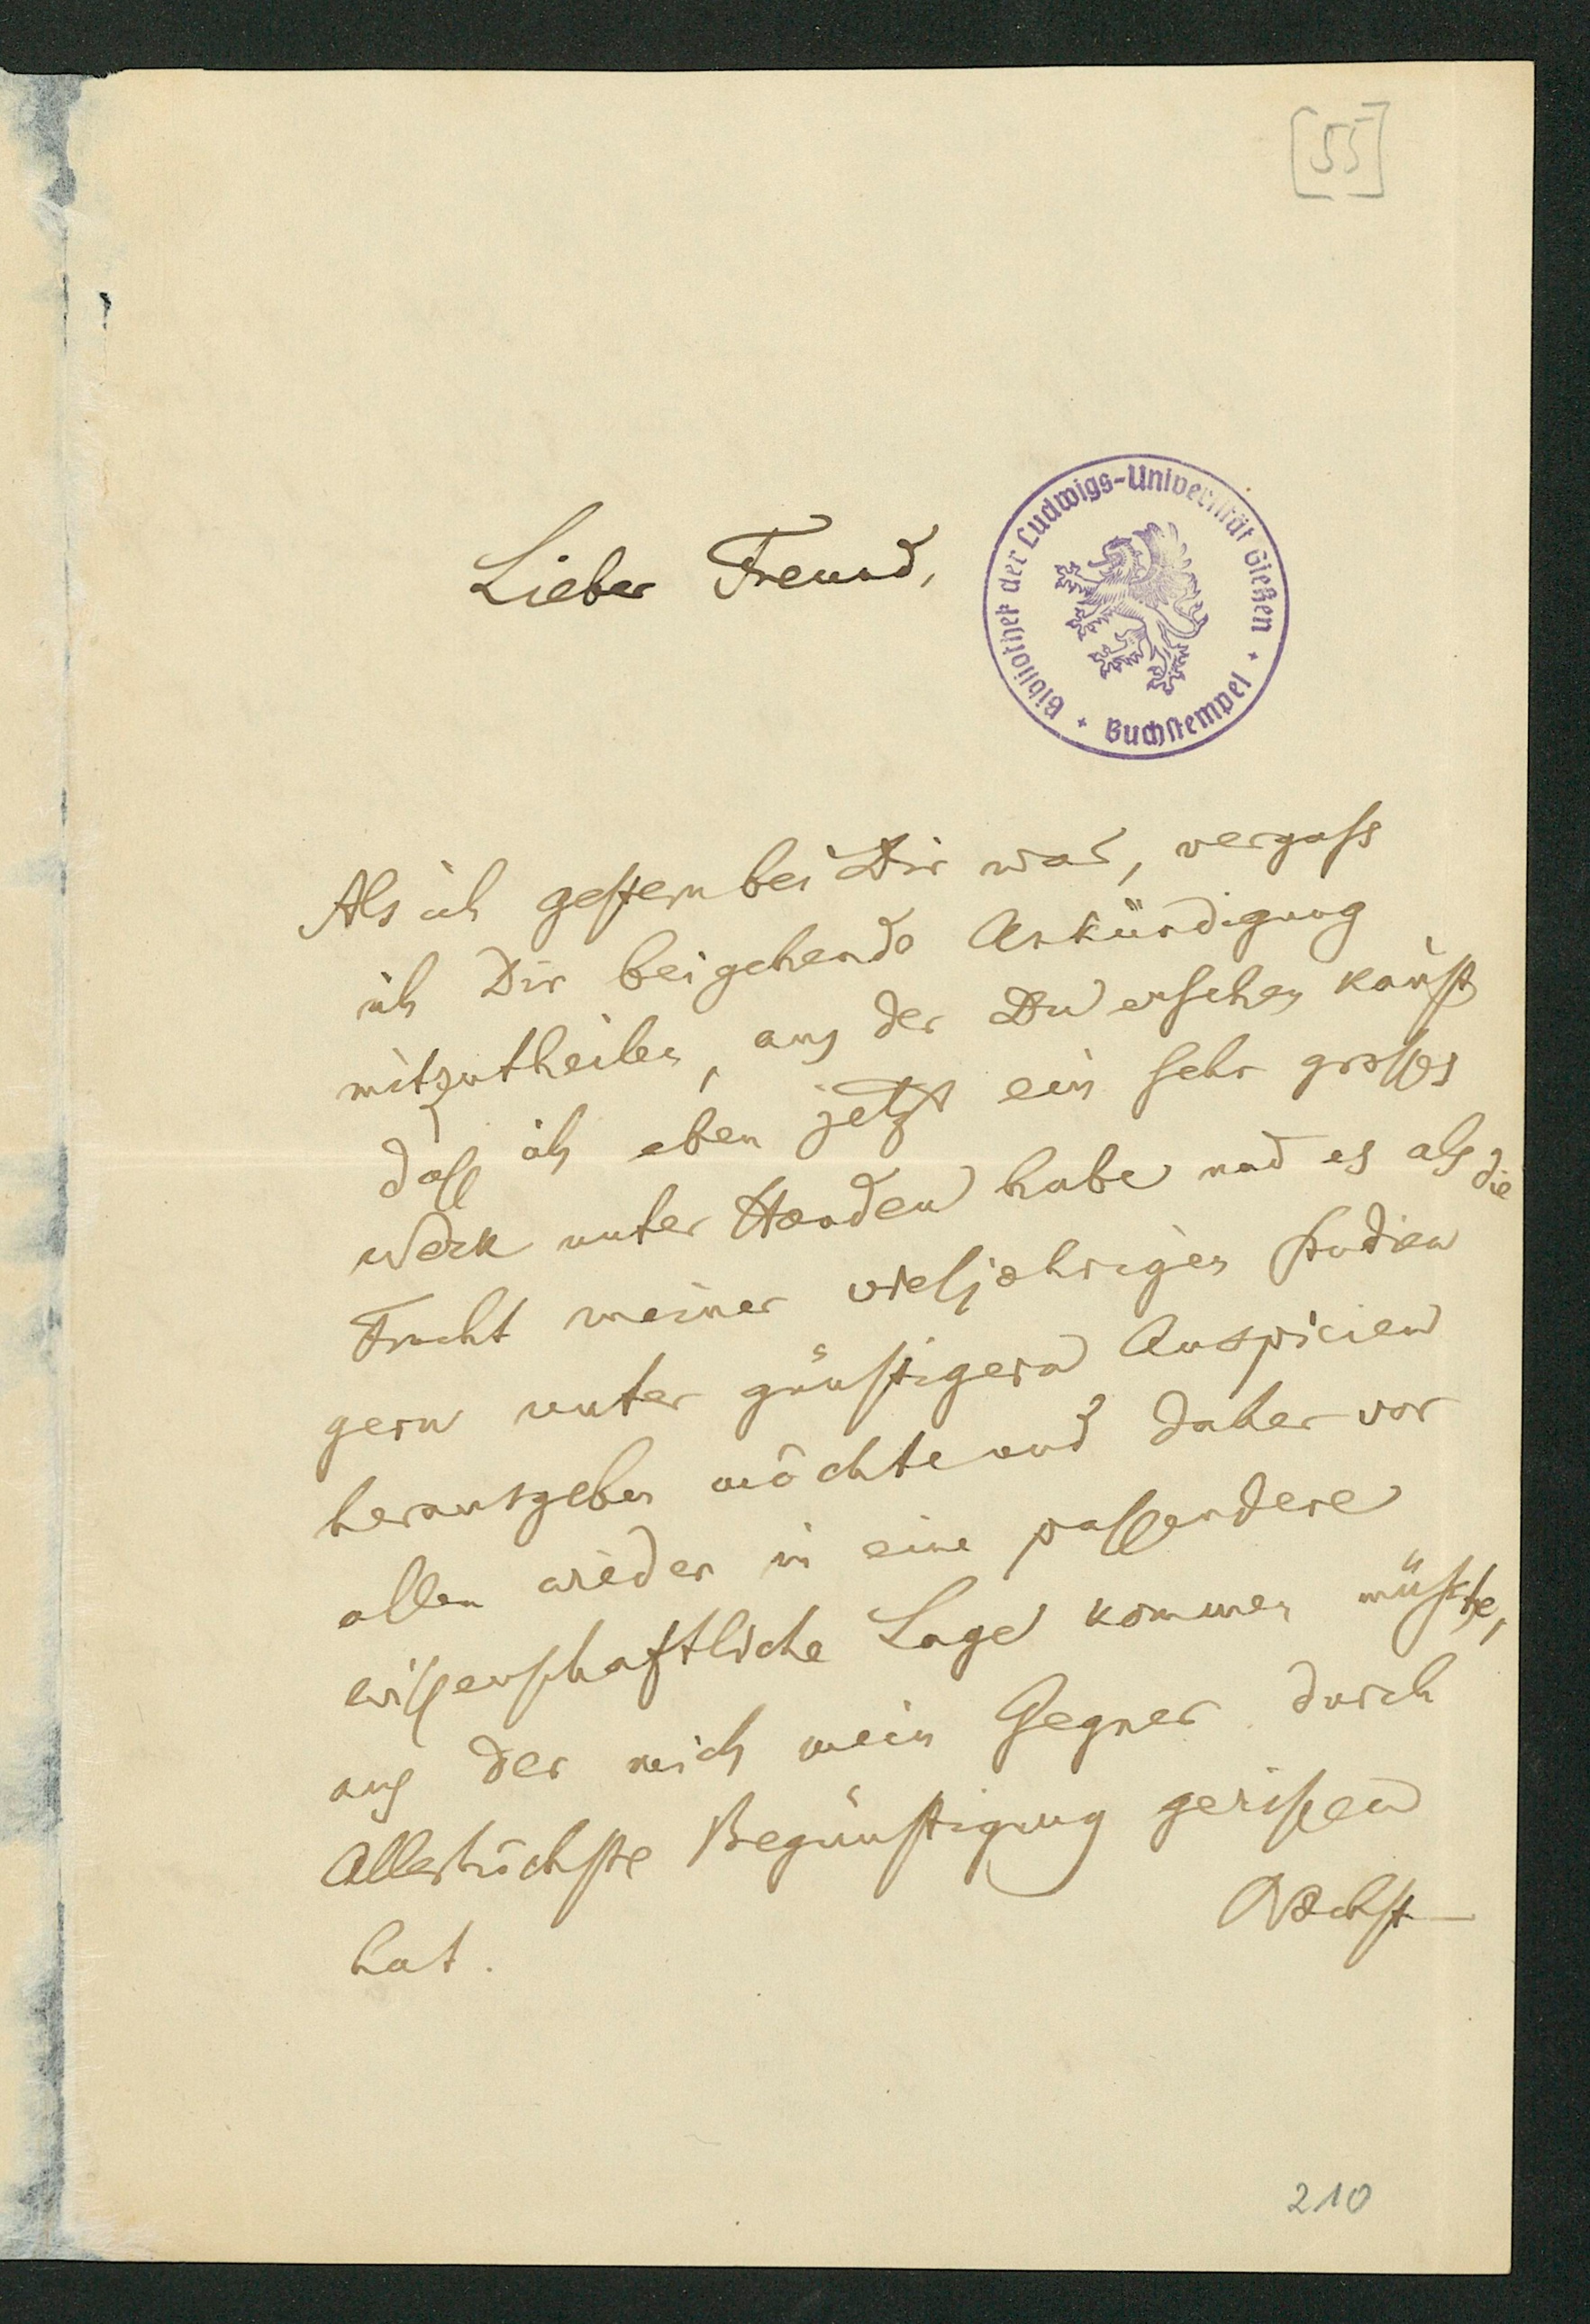 [55]
Lieber Freund,
Bibliothek der Ludwigs-Universität Gießen
Buchstempel
Als ich gestern bei Dir war, vergass
ich Dir beigehende Ankündigung
mitzutheilen, aus der Du ersehen kannst
dass ich eben jetzt ein sehr grosses
Werk unter Händen habe und es als die
Frucht meiner vieljährigen Studien
gern unter günstigern Auspicien
herausgeben möchte und daher vor
allem wieder in eine passendere
wissenschaftliche Lage kommen müsste,
aus der mich mein Gegner durch
Allerhöchste Begünstigung gerissen
hat.
Nächst
210